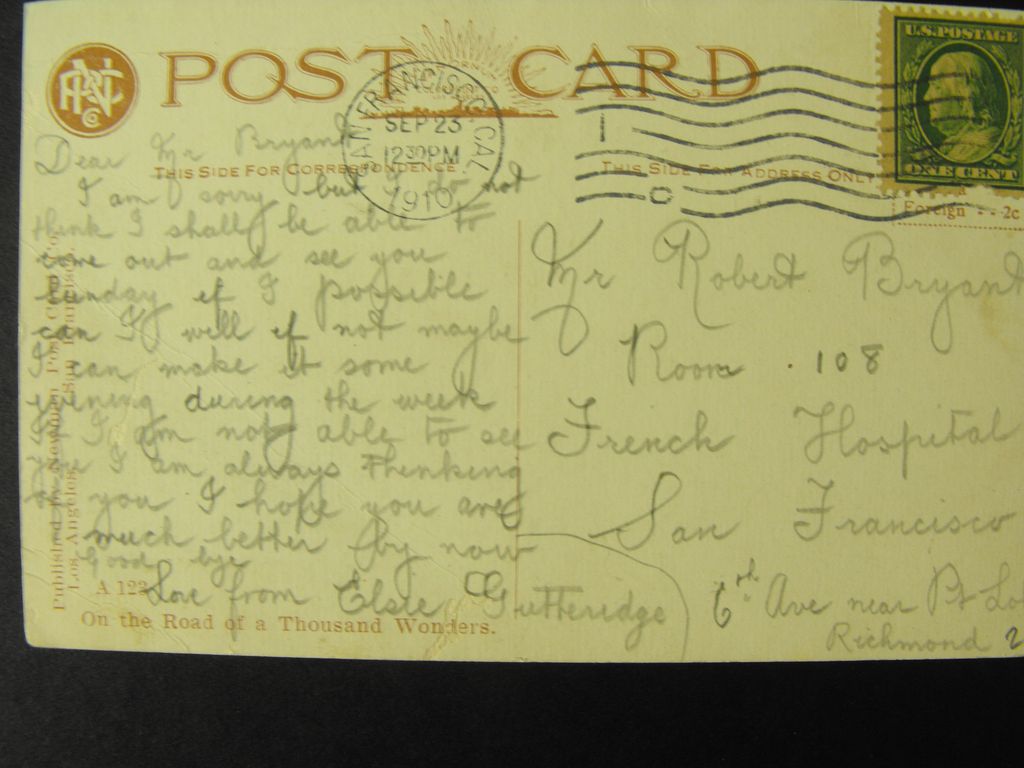 POST CARD
U.S. POSTAGE
ONE CENT
SAN FRANCISCO, CAL.
SEP 23
12 30 PM
1910
THIS SIDE FOR CORRESPONDENCE
THIS SIDE FOR ADDRESS ONLY
Foreign - - 2c
Dear Mr Bryant
I am sorry but I do not
think I shall be able to
come out and see you
Sunday if I possible
can I will if not maybe
I can make it some
evening during the week
If I am not able to see
you I am always thinking
of you I hope you are
much better by now
Good bye
Love from Elsie Gutteridge
Mr Robert Bryant
Room . 108
French Hospital
San Francisco
6th Ave near Pt Lo
Richmond
Published by Newman Post Card Co.
Los Angeles San Francisco
A 122
On the Road of a Thousand Wonders.